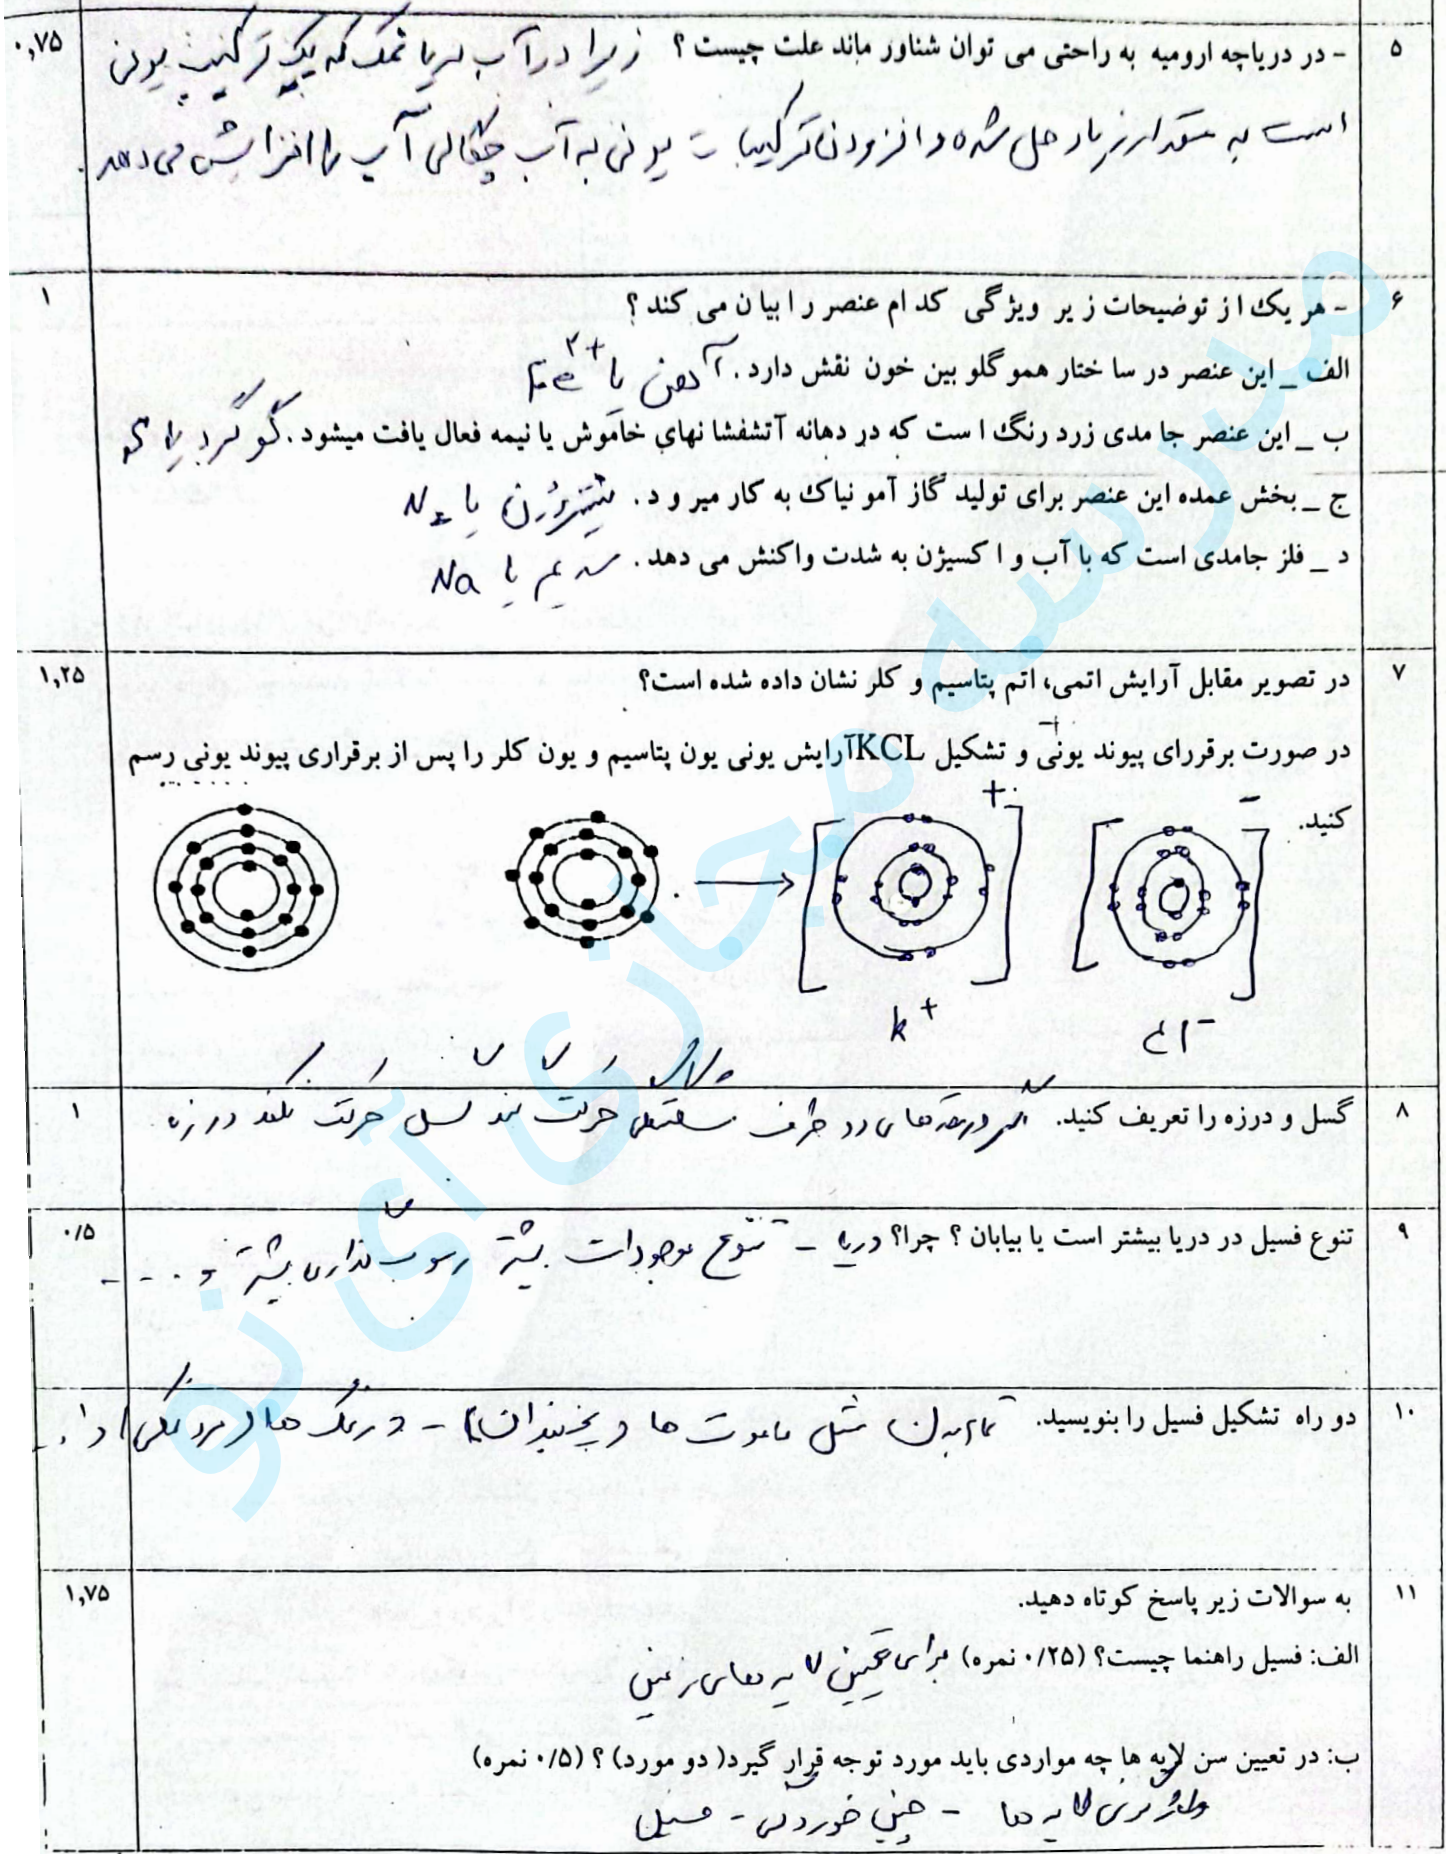 ۵ - در دریاچه ارومیه به راحتی می توان شناور ماند علت چیست ؟ زیرا در آب دریا نمک که یک ترکیب یونی ۰,۷۵
است به مقدار زیاد حل شده و افزودن ترکیبات یونی به آب چگالی آب را افزایش می دهد.
۶ - هر یک از توضیحات زیر ویژگی کدام عنصر را بیان می کند ؟ ۱
الف _ این عنصر در ساختار هموگلوبین خون نقش دارد. آهن یا Fe²⁺
ب _ این عنصر جامدی زرد رنگ است که در دهانه آتشفشانهای خاموش یا نیمه فعال یافت میشود. گوگرد یا S
ج _ بخش عمده این عنصر برای تولید گاز آمونیاک به کار میرود. نیتروژن یا N₂
د _ فلز جامدی است که با آب و اکسیژن به شدت واکنش می دهد. سدیم یا Na
۷ در تصویر مقابل آرایش اتمی، اتم پتاسیم و کلر نشان داده شده است؟ ۱,۲۵
در صورت برقررای پیوند یونی و تشکیل KCL آرایش یونی یون پتاسیم و یون کلر را پس از برقراری پیوند یونی رسم
کنید.
+ -
K⁺ Cl⁻
۸ گسل و درزه را تعریف کنید. اگر دو طرف شکستگی حرکت کند گسل حرکت نکند درزه ۱
۹ تنوع فسیل در دریا بیشتر است یا بیابان ؟ چرا؟ دریا - تنوع موجودات بیشتر رسوب گذاری بیشتر و ... ۰/۵
۱۰ دو راه تشکیل فسیل را بنویسید. تمام بدن مثل ماموت ها در یخبندان - در نمک ها (مرد نمکی)
۱۱ به سوالات زیر پاسخ کوتاه دهید. ۱,۷۵
الف: فسیل راهنما چیست؟ (۰/۲۵ نمره) برای تعیین لایه های زمین
ب: در تعیین سن لایه ها چه مواردی باید مورد توجه قرار گیرد( دو مورد) ؟ (۰/۵ نمره)
وارونگی لایه ها - چین خوردگی - فسیل
مدرسه مجازی آی نو